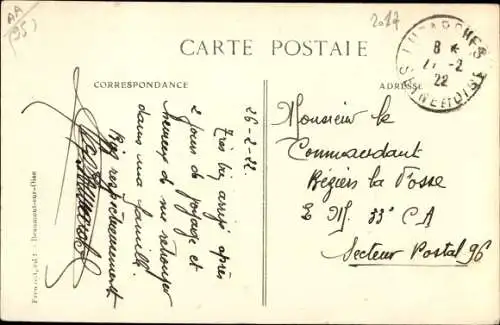 AA
(95)
2017
CARTE POSTALE
CORRESPONDANCE
ADRESSE
LUZARCHES
8
27-2
22
SEINE-ET-OISE
26-2-22
Très bien arrivé après
2 jours de voyage et
heureux de me retrouver
dans ma famille.
Bien respectueusement
Monsieur le
Commandant
Béziers la Fosse
E M. 33e C A
Secteur Postal 96
Beaumont-sur-Oise